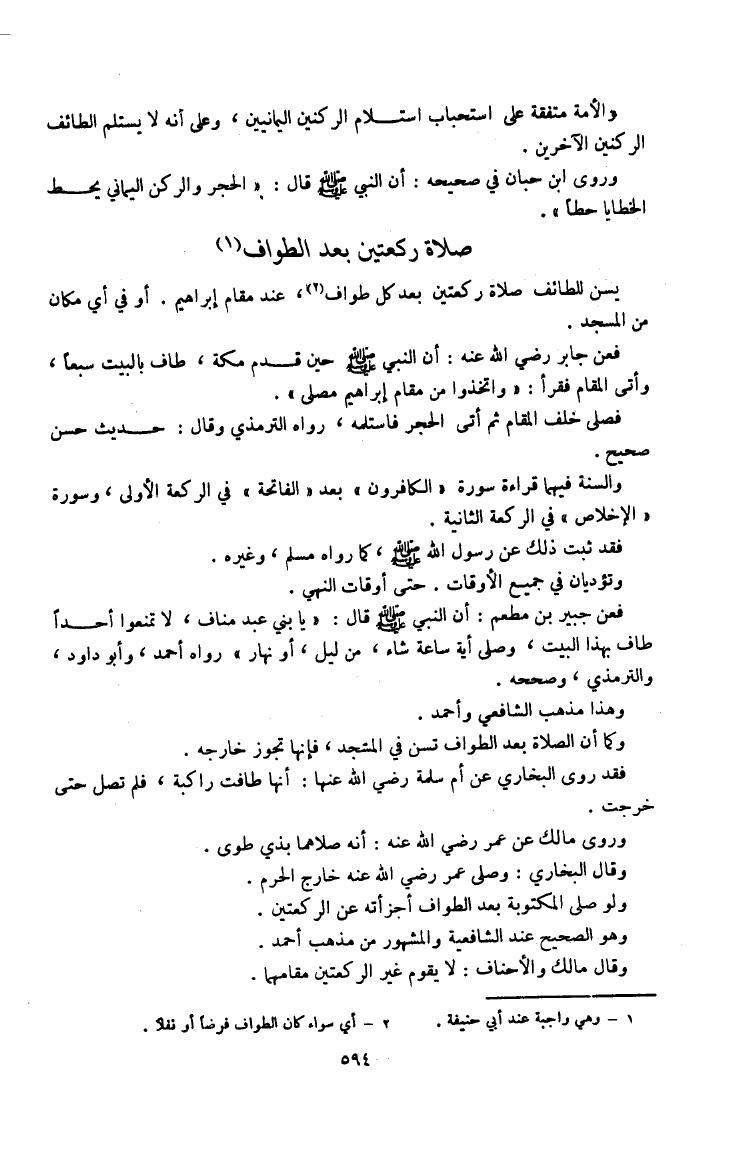 والأمة متفقة على استحباب استـــلام الركنين اليمانيين ، وعلى أنه لا يستلم الطائف
الركنين الآخرين .
وروى ابن حبان في صحيحه : أن النبي ﷺ قال : « الحجر والركن اليماني يحـــط
الخطايا حطاً » .
صلاة ركعتين بعد الطواف(١)
يسن للطائف صلاة ركعتين بعد كل طواف(٢)، عند مقام إبراهيم . أو في أي مكان
من المسجد .
فعن جابر رضي الله عنه : أن النبي ﷺ حين قـــدم مكة ، طاف بالبيت سبعاً ،
وأتى المقام فقرأ : « واتخذوا من مقام إبراهيم مصلى » .
فصلى خلف المقام ثم أتى الحجر فاستلمه ، رواه الترمذي وقال : حـــديث حسن
صحيح .
والسنة فيهما قراءة سورة « الكافرون » بعد « الفاتحة » في الركعة الأولى ، وسورة
« الإخلاص » في الركعة الثانية .
فقد ثبت ذلك عن رسول الله ﷺ ، كما رواه مسلم ، وغيره .
وتؤديان في جميع الأوقات . حتى أوقات النهي .
فعن جبير بن مطعم : أن النبي ﷺ قال : « يا بني عبد مناف ، لا تمنعوا أحـــداً
طاف بهذا البيت ، وصلى أية ساعة شاء ، من ليل ، أو نهار » رواه أحمد ، وأبو داود ،
والترمذي ، وصححه .
وهذا مذهب الشافعي وأحمد .
وكما أن الصلاة بعد الطواف تسن في المسجد ، فإنها تجوز خارجه .
فقد روى البخاري عن أم سلمة رضي الله عنها : أنها طافت راكبة ، فلم تصل حتى
خرجت .
وروى مالك عن عمر رضي الله عنه : أنه صلاهما بذي طوى .
وقال البخاري : وصلى عمر رضي الله عنه خارج الحرم .
ولو صلى المكتوبة بعد الطواف أجزأته عن الركعتين .
وهو الصحيح عند الشافعية والمشهور من مذهب أحمد .
وقال مالك والأحناف : لا يقوم غير الركعتين مقامهما .
١ – وهي واجبة عند أبي حنيفة . ٢ – أي سواء كان الطواف فرضاً أو نفلاً .
٥٩٤